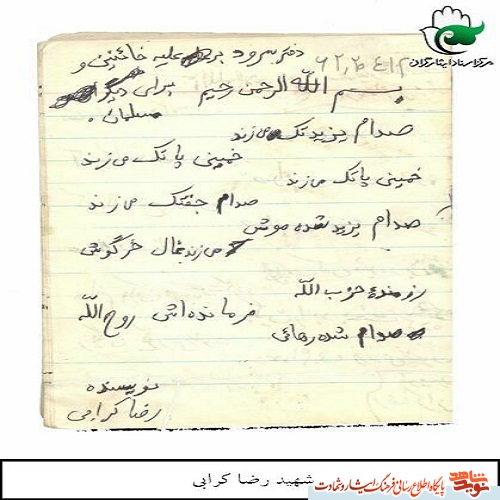 مرکز اسناد ایثارگران
دفتر سرود علیه خائنین و
بسم الله الرحمن رحیم برای دیگر
مسلمان.
صدام یزید تک می‌زند
خمینی پاتک می‌زند
خمینی پاتک می‌زند
صدام جفتک می‌زند
صدام یزید شده موش
می‌زند بغال خرگوش
رزمندهٔ حزب الله
فرمانده‌اش روح الله
صدام شده رهائی
نویسنده
رضا کرابی
شهید رضا کرابی
نوید شاهد
پایگاه اطلاع رسانی فرهنگ ایثار و شهادت